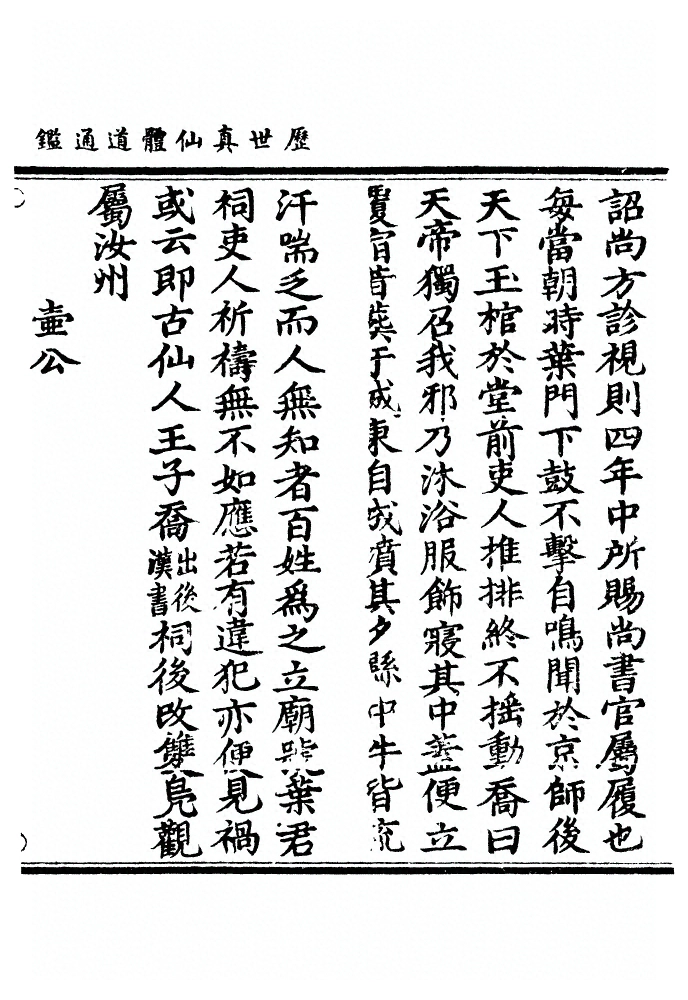 歷世真仙體道通鑑
詔尚方診視則四年中所賜尚書官屬履也
每當朝時葉門下鼓不擊自鳴聞於京師後
天下玉棺於堂前吏人推排終不搖動喬曰
天帝獨召我邪乃沐浴服飾寢其中蓋便立
覆宿昔葬于城東自成墳其夕縣中牛皆流
汗喘乏而人無知者百姓為之立廟號葉君
祠吏人祈禱無不如應若有違犯亦便見禍
或云即古仙人王子喬出後漢書祠後改雙鳧觀
屬汝州
壷公